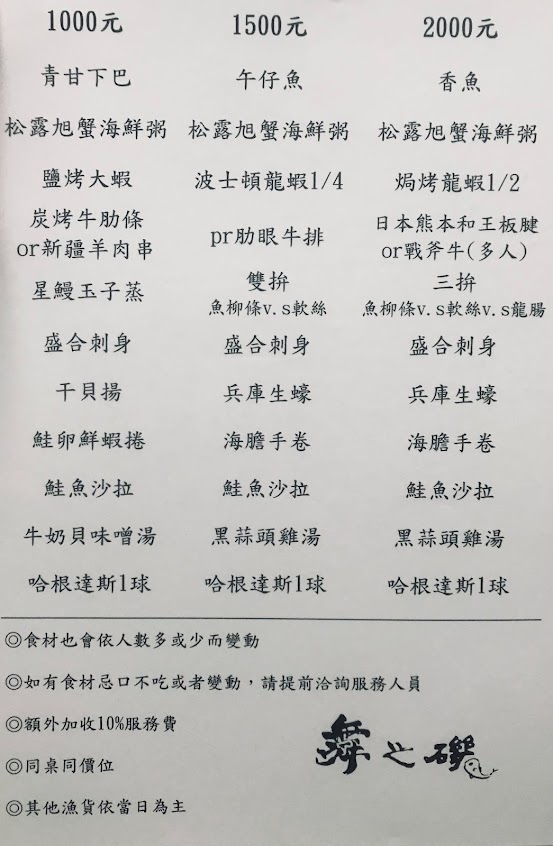 1000元 1500元 2000元
青甘下巴 午仔魚 香魚
松露旭蟹海鮮粥 松露旭蟹海鮮粥 松露旭蟹海鮮粥
鹽烤大蝦 波士頓龍蝦1/4 焗烤龍蝦1/2
炭烤牛肋條 pr肋眼牛排 日本熊本和王板腱
or新疆羊肉串 or戰斧牛(多人)
星鰻玉子蒸 雙拚 三拚
魚柳條v.s軟絲 魚柳條v.s軟絲v.s龍腸
盛合刺身 盛合刺身 盛合刺身
干貝揚 兵庫生蠔 兵庫生蠔
鮭卵鮮蝦捲 海膽手卷 海膽手卷
鮭魚沙拉 鮭魚沙拉 鮭魚沙拉
牛奶貝味噌湯 黑蒜頭雞湯 黑蒜頭雞湯
哈根達斯1球 哈根達斯1球 哈根達斯1球
◎食材也會依人數多或少而變動
◎如有食材忌口不吃或者變動，請提前洽詢服務人員
◎額外加收10%服務費
◎同桌同價位
◎其他漁貨依當日為主
舞之磯